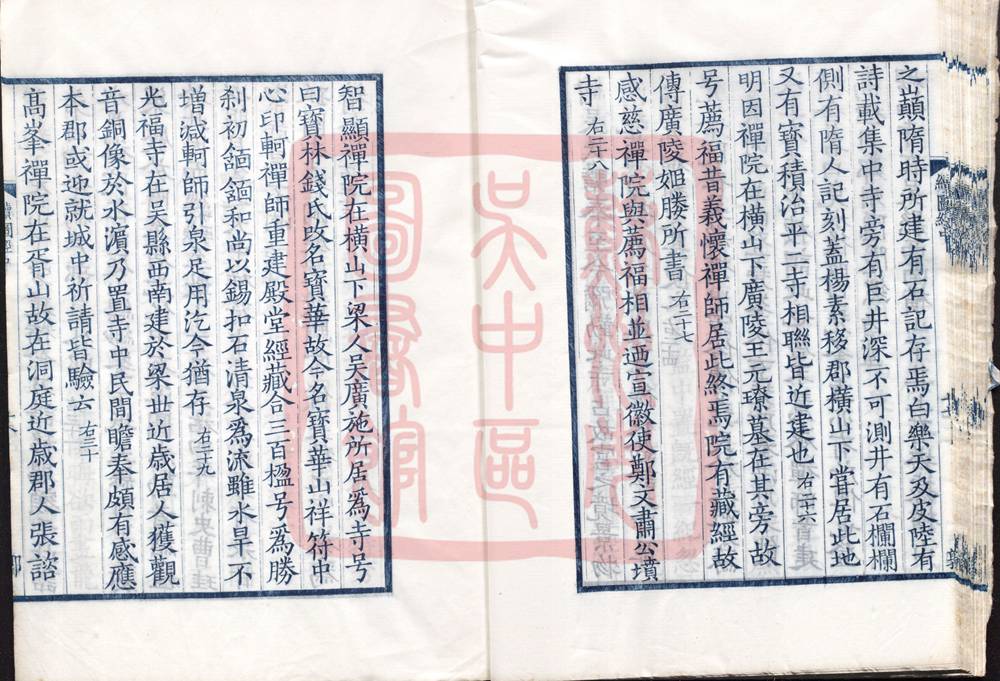 之巔隋時所建有石記存焉白樂天及皮陸有
詩載集中寺旁有巨井深不可測井有石欄欄
側有隋人記刻蓋楊素移郡橫山下嘗居此地
又有寶積治平二寺相聯皆近建也右二十六
明因禪院在橫山下廣陵王元璙墓在其旁故
号薦福昔義懷禪師居此終焉院有藏經故
傳廣陵姬勝所書右二十七
感慈禪院與薦福相並迺宣徽使鄭文肅公墳
寺右二十八
智顯禪院在橫山下梁人吳廣施所居爲寺号
曰寶林錢氏改名寶華故今名寶華山祥符中
心印軻禪師重建殿堂經藏合三百楹号爲勝
刹初䭑䭑和尚以錫扣石清泉爲流雖水旱不
增減軻師引泉足用汔今猶存右二十九
光福寺在吳縣西南建於梁世近歲居人獲觀
音銅像於水濵乃置寺中民間瞻奉頗有感應
本郡或迎就城中祈請皆驗云右三十
高峯禪院在胥山故在洞庭近歲郡人張諮
蘇州市
吳中區
圖書館